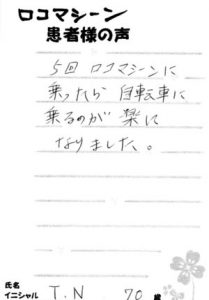 ロコマシーン
患者様の声
5回 ロコマシーンに
乗ったら 自転車に
乗るのが 楽に
なりました。
氏名
イニシャル T.N 70 歳